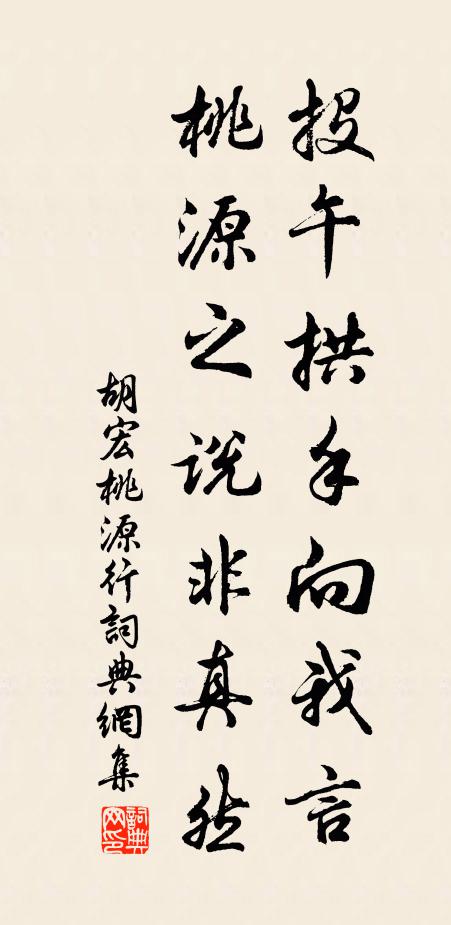 投午拱手向我言
桃源之說非真然
胡宏桃源行詞典網集
詞典网印